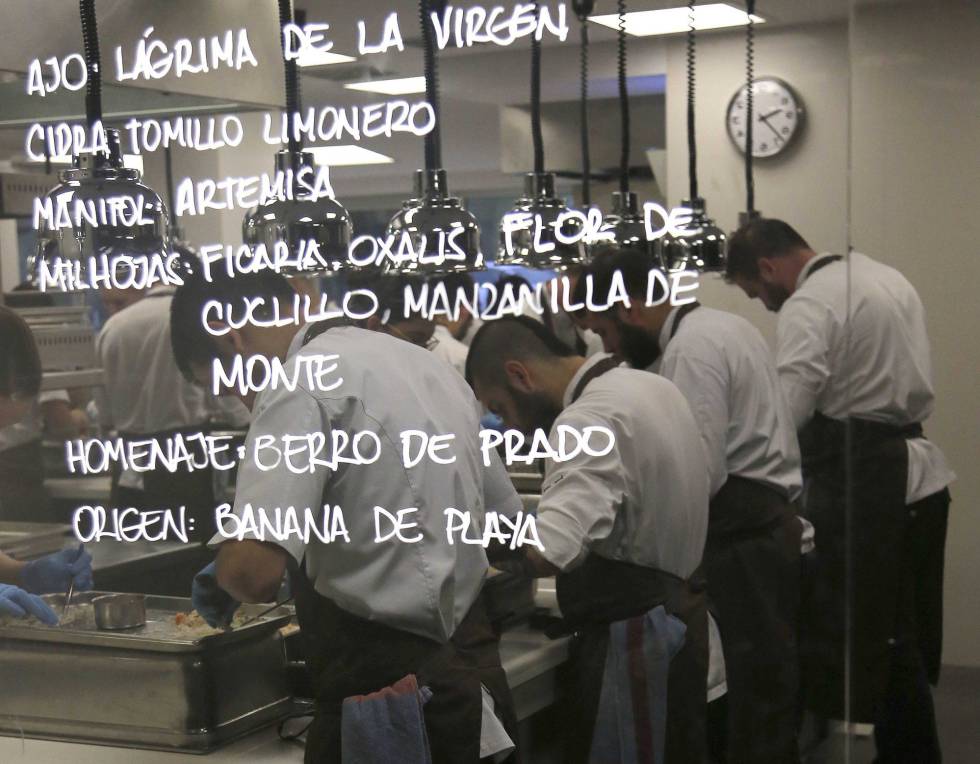 AJO: LÁGRIMA DE LA VIRGEN
CIDRA: TOMILLO LIMONERO
MANITOL: ARTEMISA
MILHOJAS: FICARIA, OXALIS, FLOR DE
CUCLILLO, MANZANILLA DE
MONTE
HOMENAJE: BERRO DE PRADO
ORIGEN: BANANA DE PLAYA